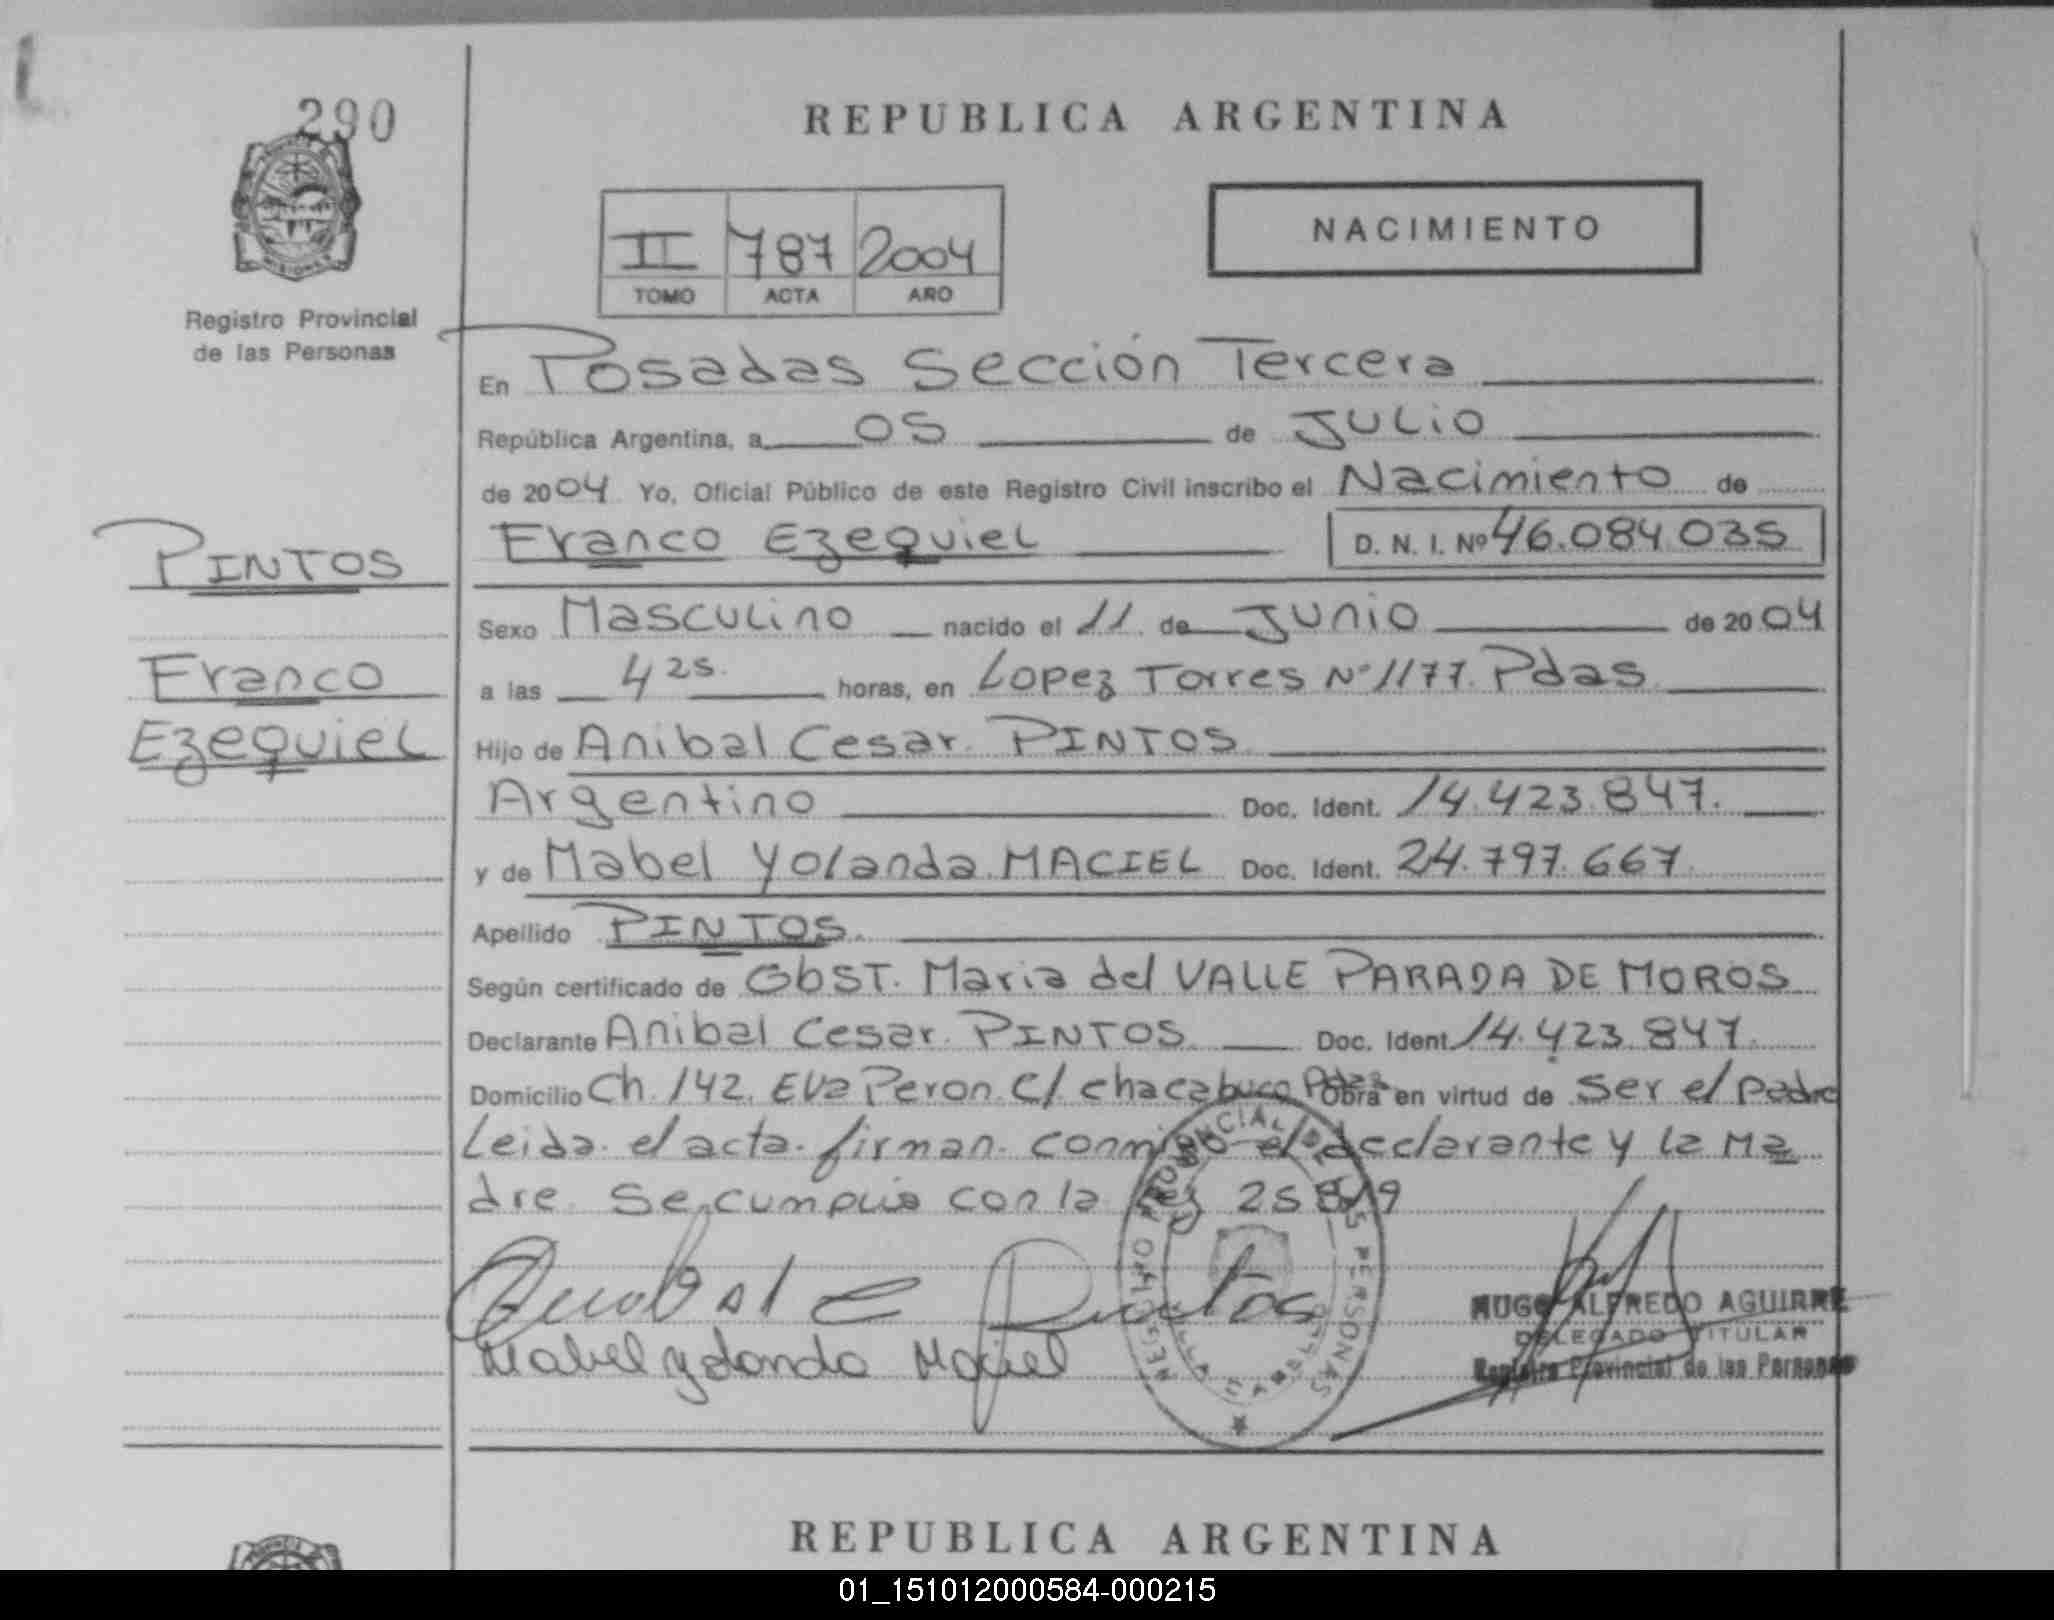 290
REPUBLICA ARGENTINA
MISIONES
Registro Provincial
de las Personas
II 787 2004
TOMO ACTA AÑO
NACIMIENTO
En Posadas Sección Tercera
República Argentina, a 05 de Julio
de 2004 Yo, Oficial Público de este Registro Civil inscribo el Nacimiento de
Franco Ezequiel D. N. I. Nº 46.084.035
PINTOS
Franco
Ezequiel
Sexo Masculino nacido el 11 de Junio de 2004
a las 4 25. horas, en Lopez Torres Nº 1177. Pdas
Hijo de Anibal Cesar PINTOS
Argentino Doc. Ident. 14.423.847.
y de Mabel Yolanda MACIEL Doc. Ident. 24.797.667
Apellido PINTOS.
Según certificado de Obst. Maria del VALLE PARADA DE MOROS
Declarante Anibal Cesar PINTOS Doc. Ident. 14.423.847.
Domicilio Ch. 142. Eva Peron C/ chacabuco Pdas Obra en virtud de ser el padre
Leida el acta firman conmigo el declarante y la Ma
dre Se cumplio con la ley 25819
Anibal C Pintos
Mabel Yolanda Maciel
REGISTRO PROVINCIAL DE LAS PERSONAS
HUGO ALFREDO AGUIRRE
DELEGADO TITULAR
Registro Provincial de las Personas
REPUBLICA ARGENTINA
01_151012000584-000215